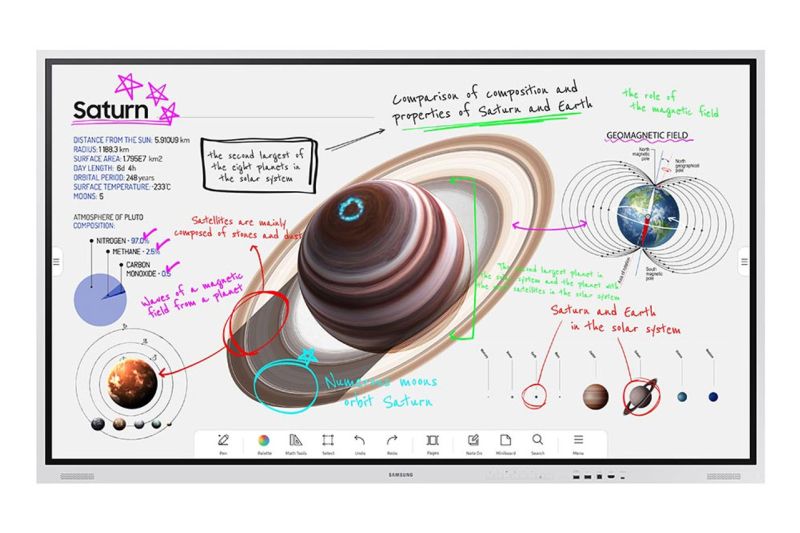 Saturn
DISTANCE FROM THE SUN: 5.910U9 km
RADIUS: 1 188.3 km
SURFACE AREA: 1.795E7 km2
DAY LENGTH: 6d 4h
ORBITAL PERIOD: 248 years
SURFACE TEMPERATURE: -233°C
MOONS: 5
ATMOSPHERE OF PLUTO
COMPOSITION:
NITROGEN - 97.0%
METHANE - 2.5%
CARBON
MONOXIDE - 0.5
the second largest of
the eight planets in
the solar system
Comparison of composition and
properties of Saturn and Earth
the role of
the magnetic field
GEOMAGNETIC FIELD
North
magnetic
pole
North
geographical
pole
Axis of rotation
South
magnetic
pole
Satellites are mainly
composed of stones and dust
Waves of a magnetic
field from a planet
The second largest planet in
the solar system and the planet with
the most satellites in the solar system
Saturn and Earth
in the solar system
Numerous moons
orbit Saturn
Pen
Palette
Math Tools
Select
Undo
Redo
Pages
Note On
Miniboard
Search
Menu
SAMSUNG